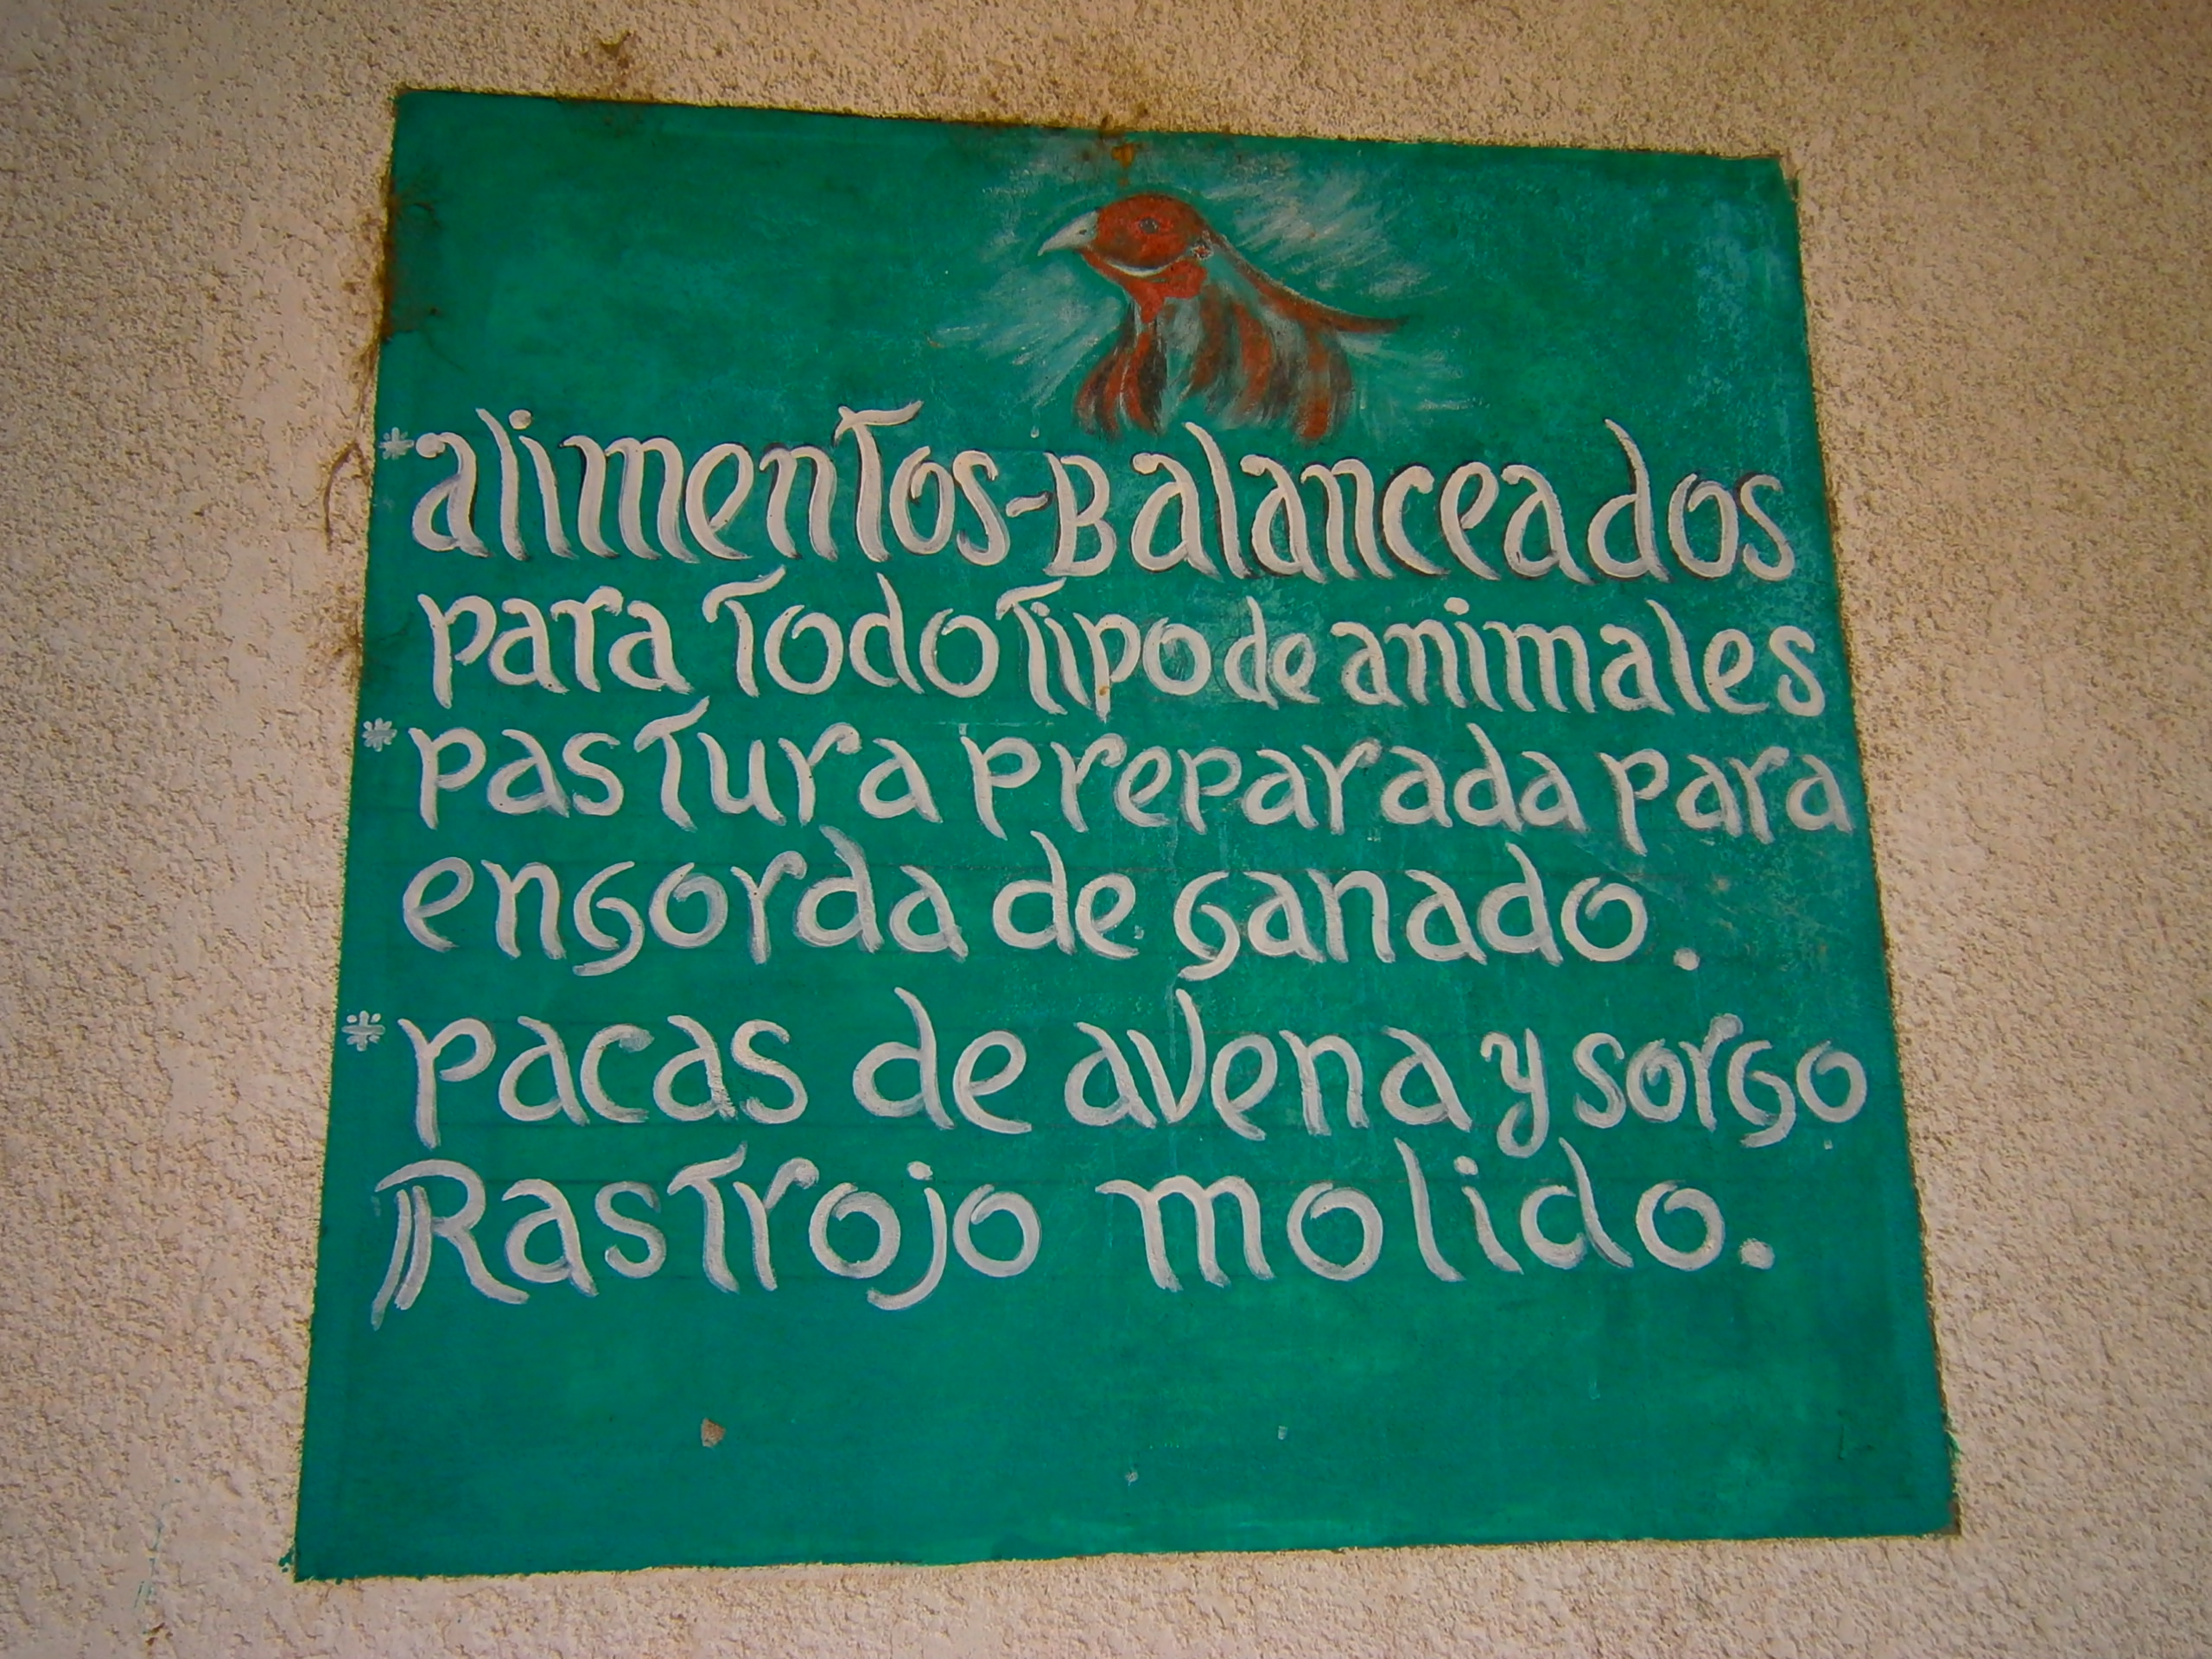 *alimentos-Balanceados
para Todo Tipo de animales
*pastura preparada para
engorda de ganado.
*pacas de avena y sorgo
Rastrojo molido.